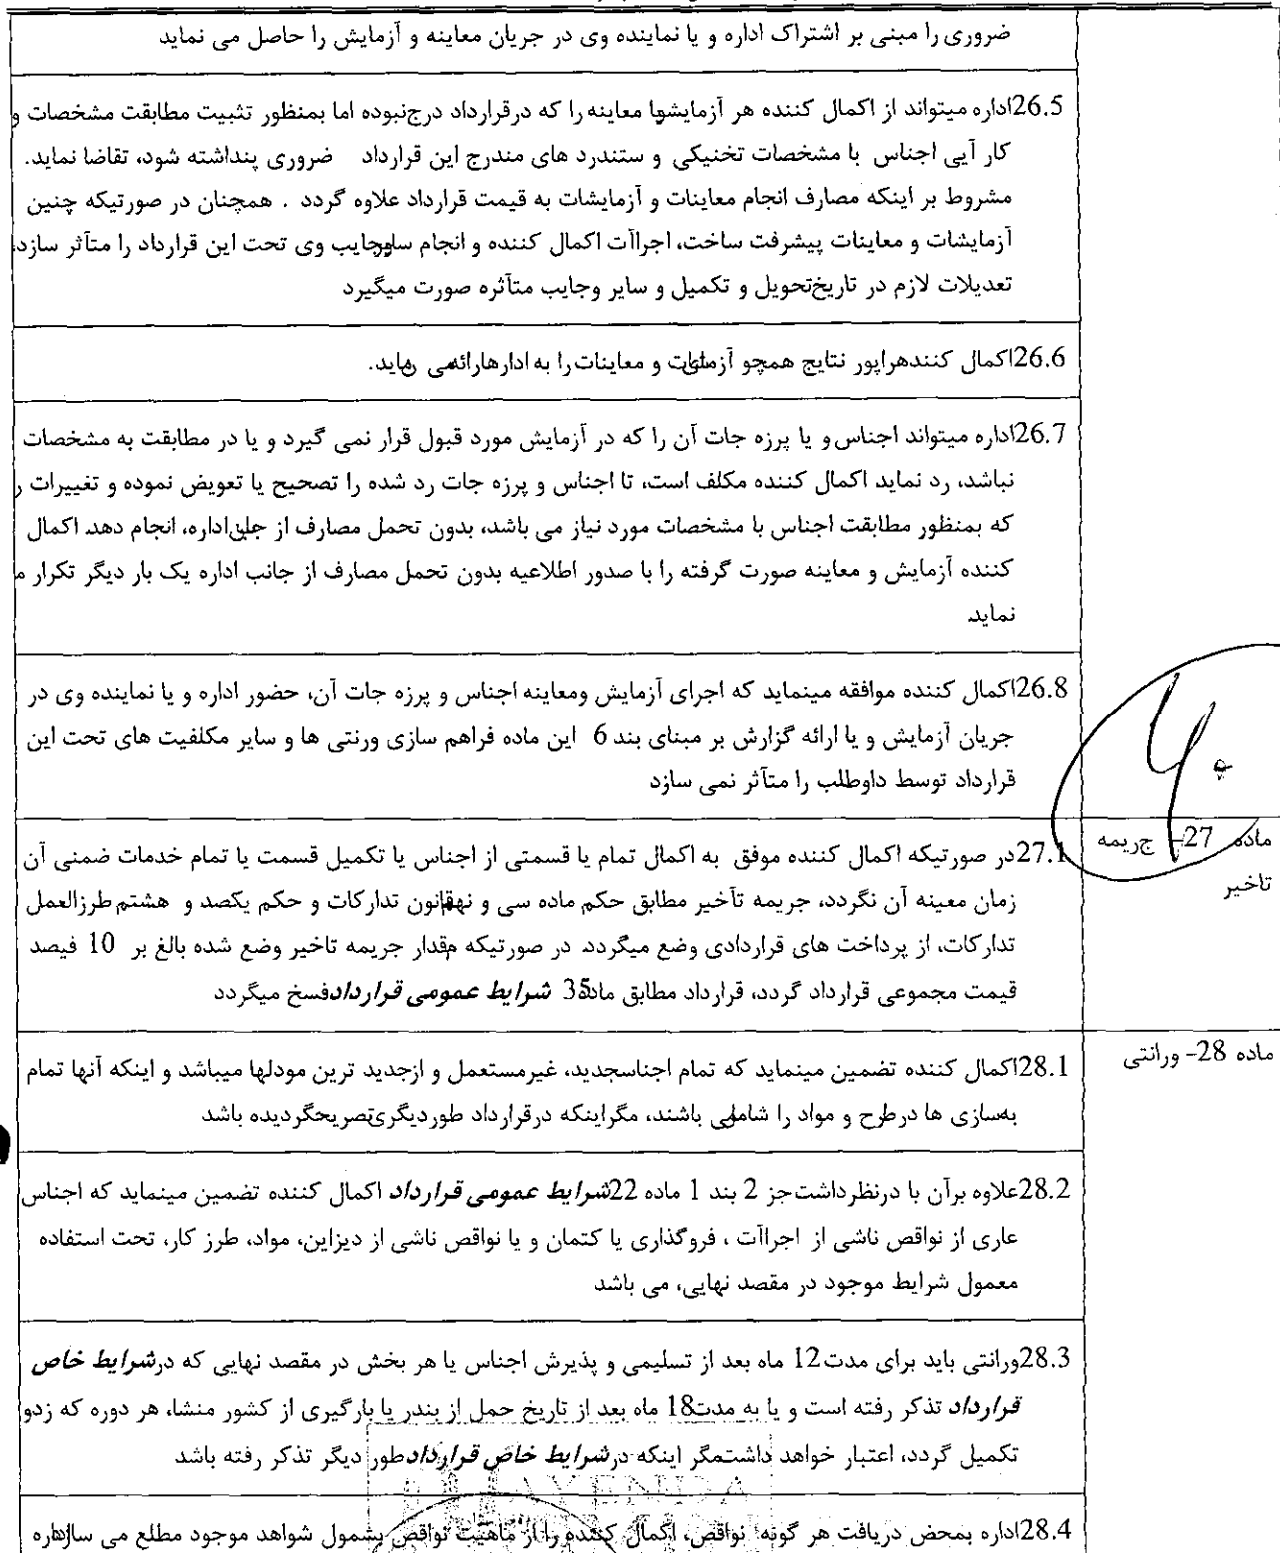 ضروری را مبنی بر اشتراک اداره و یا نماینده وی در جریان معاینه و آزمایش را حاصل می نماید
26.5اداره میتواند از اکمال کننده هر آزمایشویا معاینه را که درقرارداد درج نبوده اما بمنظور تثبیت مطابقت مشخصات و
کار آیی اجناس با مشخصات تخنیکی و ستندرد های مندرج این قرارداد ضروری پنداشته شود، تقاضا نماید.
مشروط بر اینکه مصارف انجام معاینات و آزمایشات به قیمت قرارداد علاوه گردد . همچنان در صورتیکه چنین
آزمایشات و معاینات پیشرفت ساخت، اجراآت اکمال کننده و انجام سایروجایب وی تحت این قرارداد را متآثر سازد،
تعدیلات لازم در تاریخ تحویل و تکمیل و سایر وجایب متآثره صورت میگیرد
26.6اکمال کننده راپور نتایج همچو آزمایشات و معاینات را به اداره ارائه می نماید.
26.7اداره میتواند اجناس و یا پرزه جات آن را که در آزمایش مورد قبول قرار نمی گیرد و یا در مطابقت به مشخصات
نباشد، رد نماید اکمال کننده مکلف است، تا اجناس و پرزه جات رد شده را تصحیح یا تعویض نموده و تغییرات ر
که بمنظور مطابقت اجناس با مشخصات مورد نیاز می باشد، بدون تحمل مصارف از جانب اداره، انجام دهد. اکمال
کننده آزمایش و معاینه صورت گرفته را با صدور اطلاعیه بدون تحمل مصارف از جانب اداره یک بار دیگر تکرار م
نماید.
26.8اکمال کننده موافقه مینماید که اجرای آزمایش ومعاینه اجناس و پرزه جات آن، حضور اداره و یا نماینده وی در
جریان آزمایش و یا ارائه گزارش بر مبنای بند 6 این ماده فراهم سازی ورنتی ها و سایر مکلفیت های تحت این
قرارداد توسط داوطلب را متآثر نمی سازد
ماده 27- جریمه
تاخیر
27.1در صورتیکه اکمال کننده موفق به اکمال تمام یا قسمتی از اجناس یا تکمیل قسمت یا تمام خدمات ضمنی آن
زمان معینه آن نگردد، جریمه تآخیر مطابق حکم ماده سی و نهم قانون تدارکات و حکم یکصد و هشتم طرزالعمل
تدارکات، از پرداخت های قراردادی وضع میگردد. در صورتیکه مقدار جریمه تاخیر وضع شده بالغ بر 10 فیصد
قیمت مجموعی قرارداد گردد، قرارداد مطابق ماده 35 شرایط عمومی قرارداد فسخ میگردد
ماده 28- ورانتی
28.1اکمال کننده تضمین مینماید که تمام اجناسجدید، غیرمستعمل و ازجدید ترین مودلها میباشد و اینکه آنها تمام
بهسازی ها درطرح و مواد را شامل می باشند، مگراینکه درقرارداد طوردیگری تصریحگردیده باشد
28.2علاوه برآن با درنظرداشت جز 2 بند 1 ماده 22 شرایط عمومی قرارداد اکمال کننده تضمین مینماید که اجناس
عاری از نواقص ناشی از اجراآت ، فروگذاری یا کتمان و یا نواقص ناشی از دیزاین، مواد، طرز کار، تحت استفاده
معمول شرایط موجود در مقصد نهایی، می باشد
28.3ورانتی باید برای مدت 12 ماه بعد از تسلیمی و پذیرش اجناس یا هر بخش در مقصد نهایی که درشرایط خاص
قرارداد تذکر رفته است و یا به مدت 18 ماه بعد از تاریخ حمل از بندر یا بارگیری از کشور منشا، هر دوره که زدو
تکمیل گردد، اعتبار خواهد داشت مگر اینکه درشرایط خاص قرارداد طور دیگر تذکر رفته باشد
28.4اداره بمحض دریافت هر گونه نواقص، اکمال کننده را از ماهیت نواقص بشمول شواهد موجود مطلع می سازد. اداره